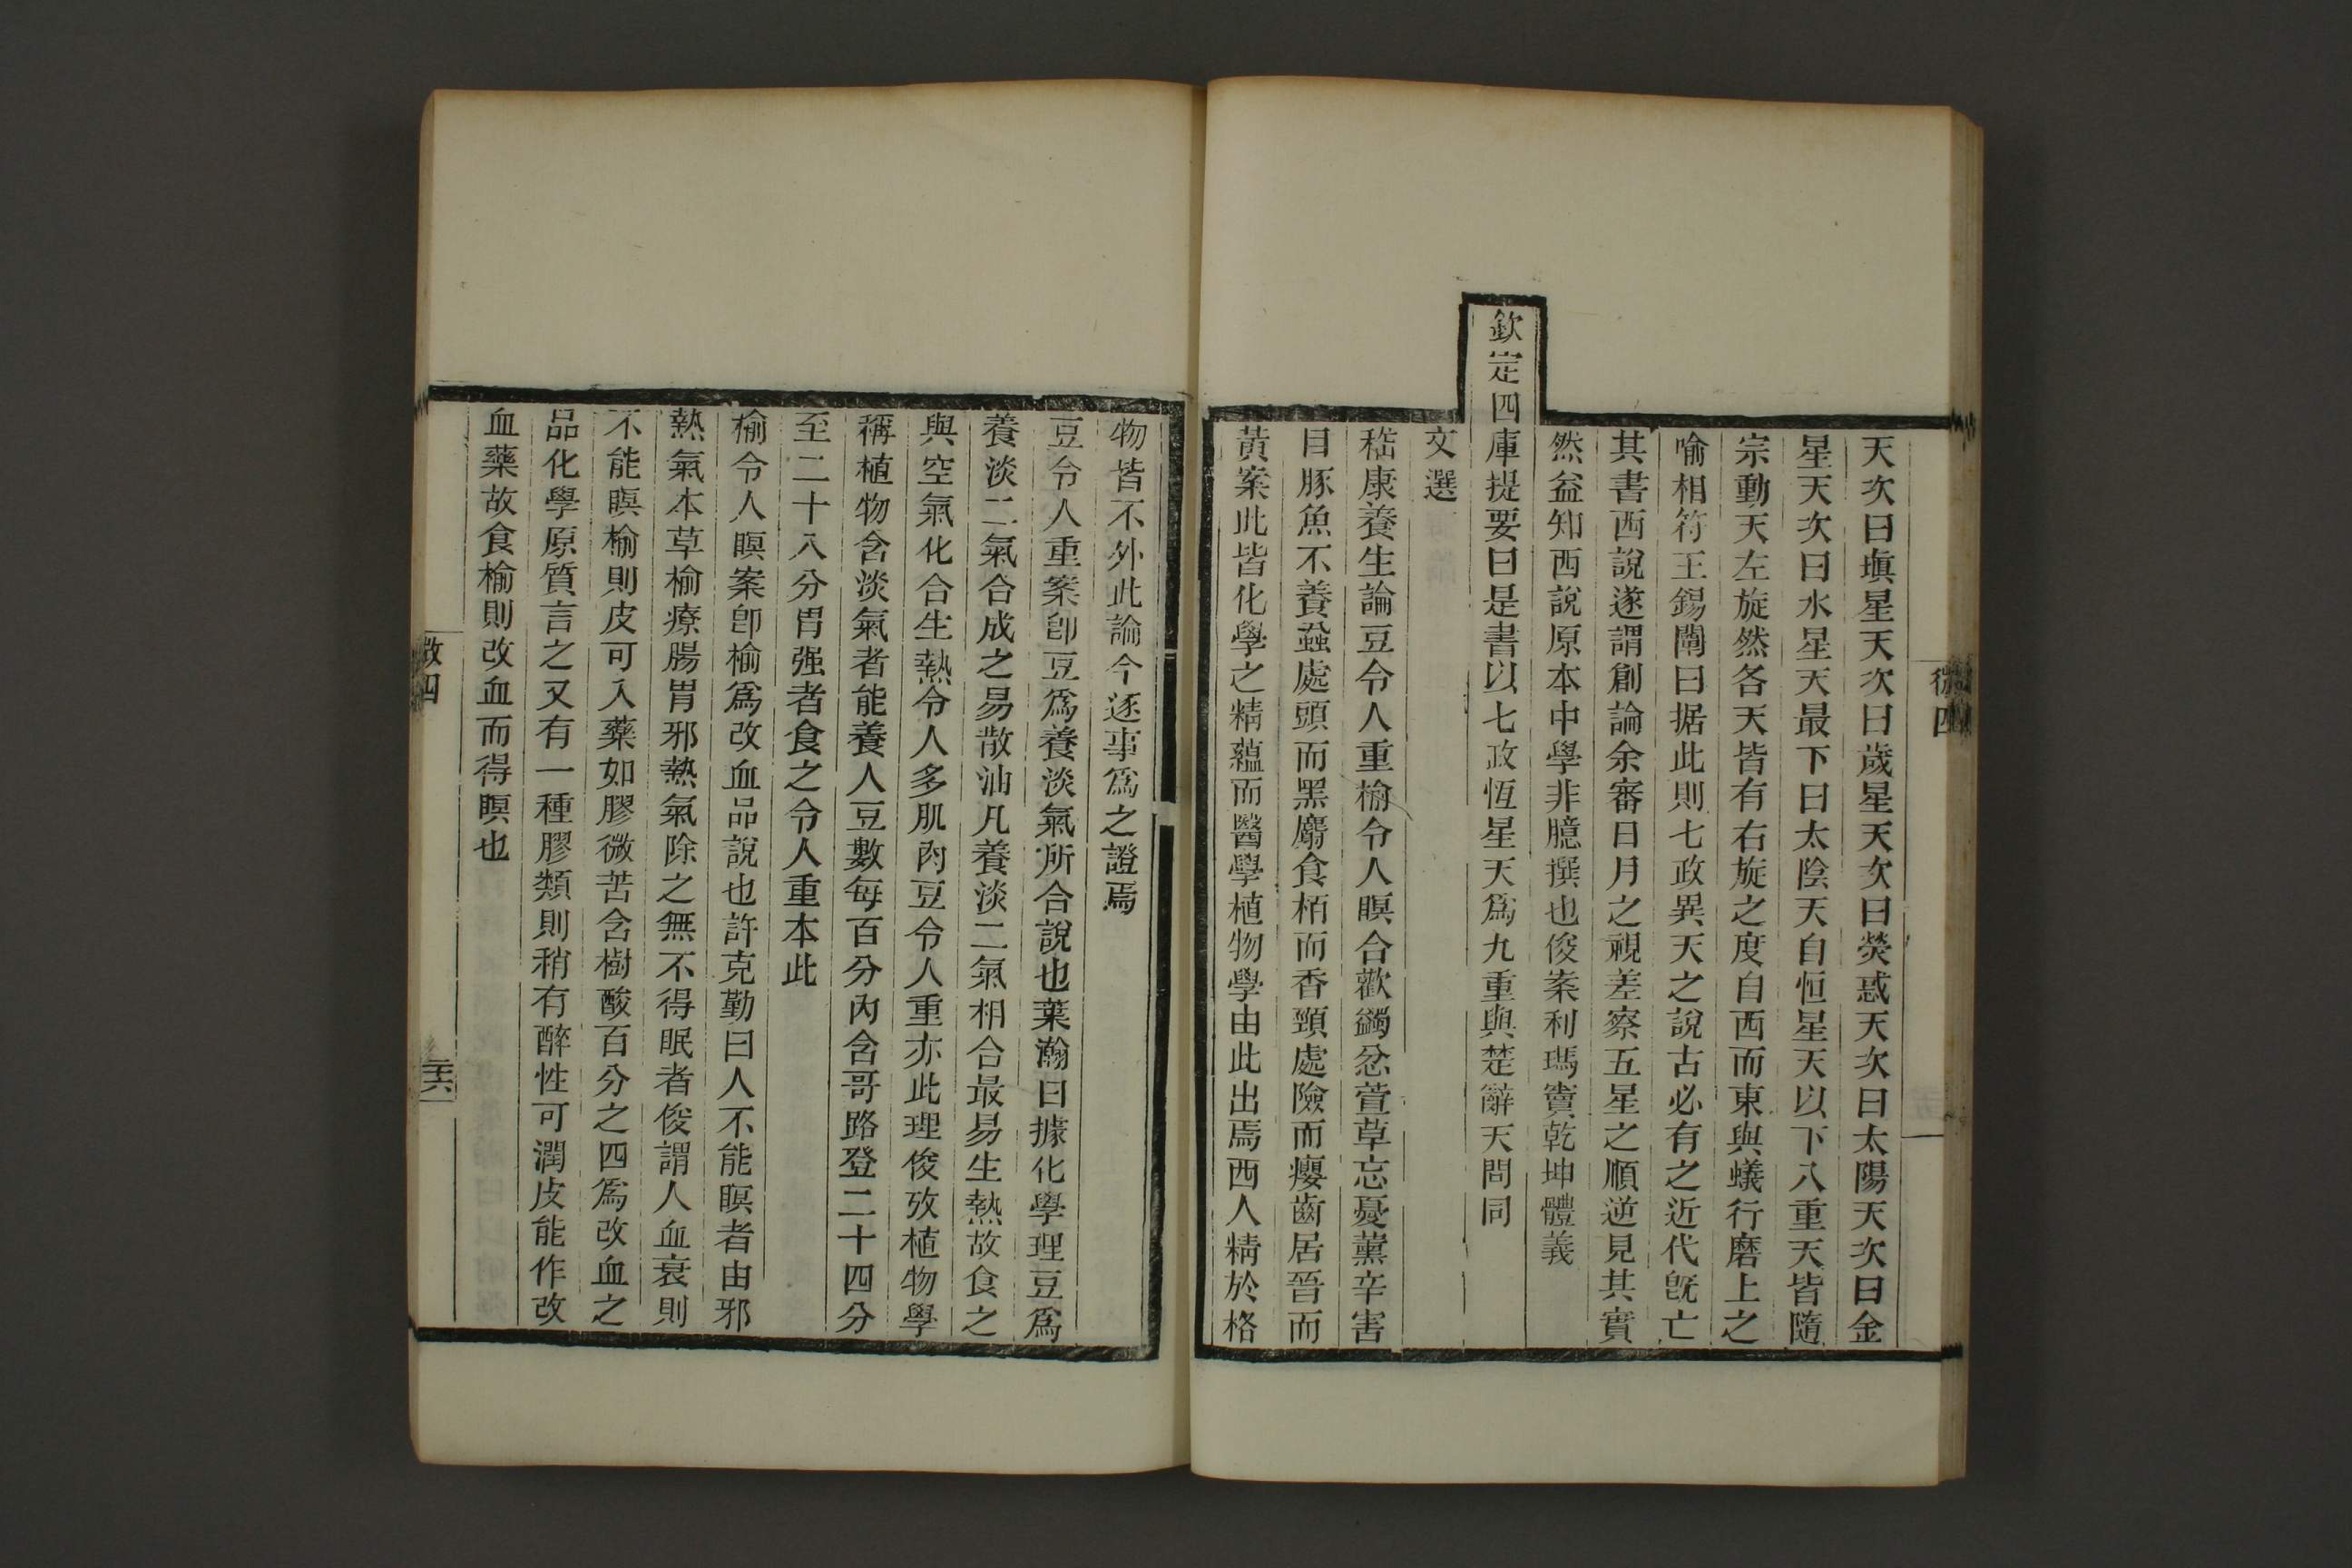 天次曰塡星天次曰歲星天次曰熒惑天次曰太陽天次曰金
星天次曰水星天最下曰太陰天自恒星天以下八重天皆隨
宗動天左旋然各天皆有右旋之度自西而東與蟻行磨上之
喻相符王錫闡曰据此則七政異天之說古必有之近代旣亡
其書西說遂謂創論余審日月之視差察五星之順逆見其實
然益知西說原本中學非臆撰也俊案利瑪竇乾坤體義
欽定四庫提要曰是書以七政恆星天爲九重與楚辭天問同
文選
嵇康養生論豆令人重榆令人瞑合歡蠲忿萱草忘憂薰辛害
目豚魚不養蝨處頭而黑麝食栢而香頸處險而癭齒居晉而
黃案此皆化學之精蘊而醫學植物學由此出焉西人精於格
物皆不外此論今逐事爲之證焉
豆令人重案卽豆爲養淡氣所合說也葉瀚曰據化學理豆爲
養淡二氣合成之易散油凡養淡二氣相合最易生熱故食之
與空氣化合生熱令人多肌肉豆令人重亦此理俊攷植物學
稱植物含淡氣者能養人豆數每百分內含哥路登二十四分
至二十八分胃强者食之令人重本此
榆令人瞑案卽榆爲改血品說也許克勤曰人不能瞑者由邪
熱氣本草榆療腸胃邪熱氣除之無不得眠者俊謂人血衰則
不能瞑榆則皮可入藥如膠微苦含樹酸百分之四爲改血之
品化學原質言之又有一種膠類則稍有醉性可潤皮能作改
血藥故食榆則改血而得瞑也